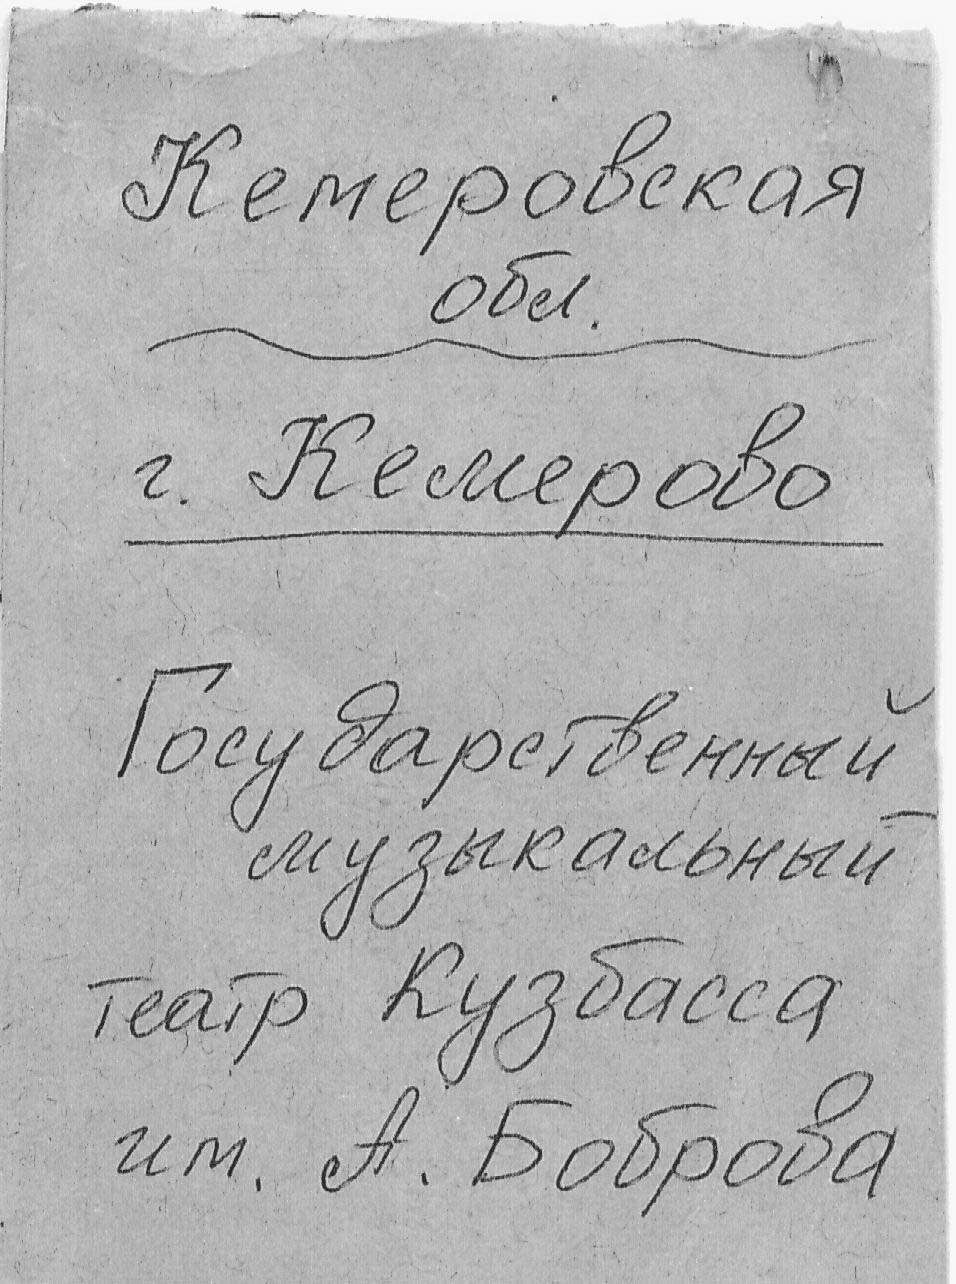 Кемеровская
обл.
г. Кемерово
Государственный
музыкальный
театр Кузбасса
им. А. Боброва